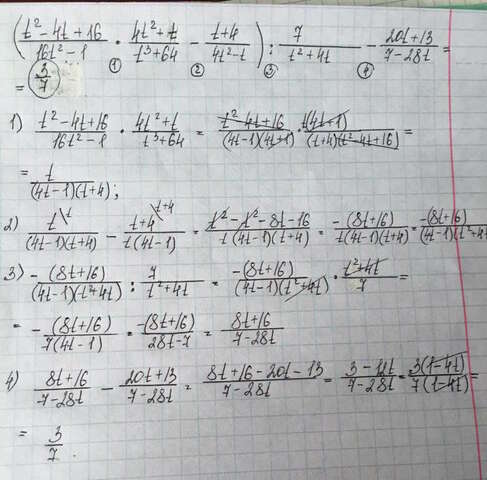 ( (t² - 4t + 16)/(16t² - 1) · (4t² + t)/(t³ + 64) - (t + 4)/(4t² - t) ) : 7/(t² + 4t) - (20t + 13)/(7 - 28t) =
① ② ③ ④
= 3/7
1) (t² - 4t + 16)/(16t² - 1) · (4t² + t)/(t³ + 64) = (t² - 4t + 16)/((4t - 1)(4t + 1)) · t(4t + 1)/((t + 4)(t² - 4t + 16)) =
= t/((4t - 1)(t + 4));
2) t\t/((4t - 1)(t + 4)) - t + 4\t+4/(t(4t - 1)) = (t² - t² - 8t - 16)/(t(4t - 1)(t + 4)) = -(8t + 16)/(t(4t - 1)(t + 4)) = -(8t + 16)/((4t - 1)(t² + 4
3) -(8t + 16)/((4t - 1)(t² + 4t)) : 7/(t² + 4t) = -(8t + 16)/((4t - 1)(t² + 4t)) · (t² + 4t)/7 =
= -(8t + 16)/(7(4t - 1)) = -(8t + 16)/(28t - 7) = (8t + 16)/(7 - 28t)
4) (8t + 16)/(7 - 28t) - (20t + 13)/(7 - 28t) = (8t + 16 - 20t - 13)/(7 - 28t) = (3 - 12t)/(7 - 28t) = 3(1 - 4t)/(7(1 - 4t)) =
= 3/7.